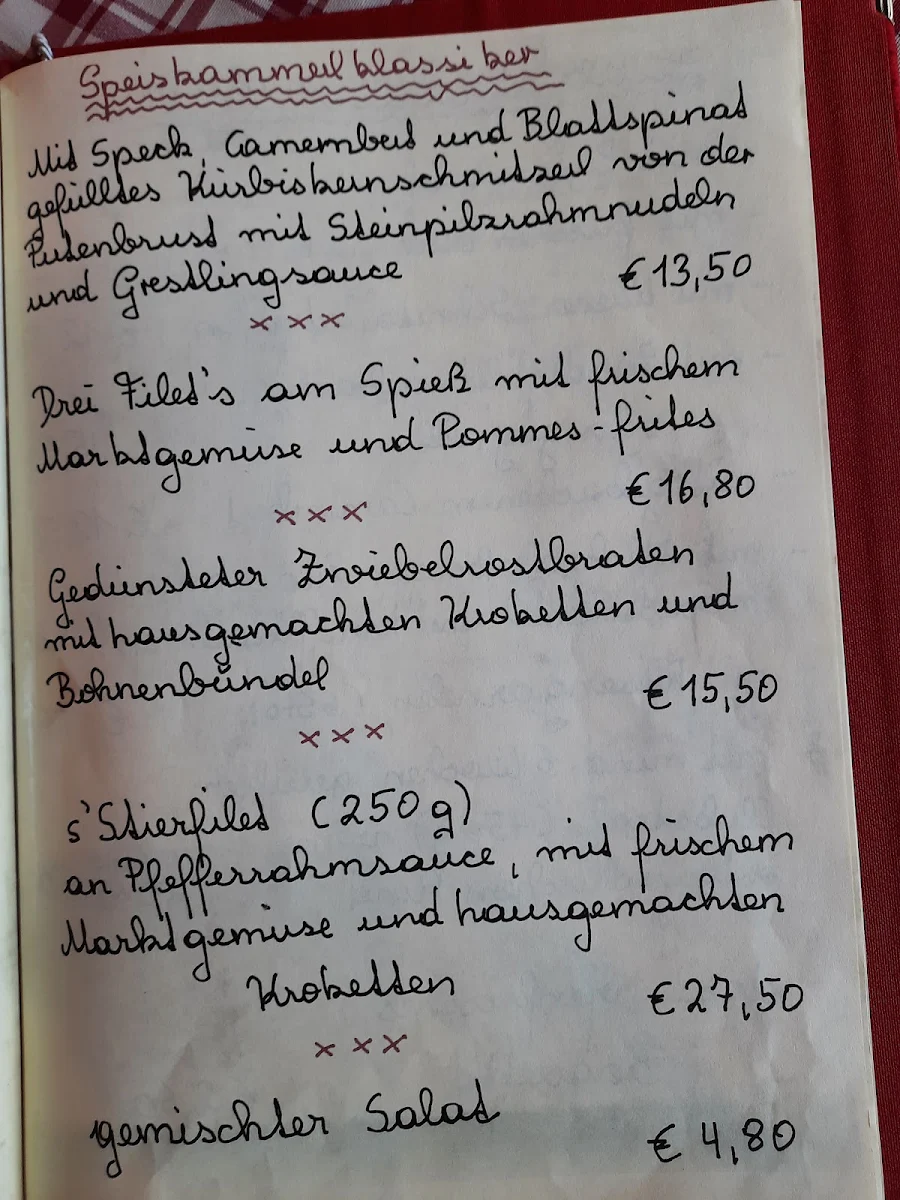 Speiskammerlklassiker
Mit Speck, Camembert und Blattspinat
gefülltes Kürbiskernschnitzerl von der
Putenbrust mit Steinpilzrahmnudeln
und Grestlingsauce
€ 13,50
x x x
Drei Filet's am Spieß mit frischem
Marktgemüse und Pommes-frites
€ 16,80
x x x
Gedünsteter Zwiebelrostbraten
mit hausgemachten Kroketten und
Bohnenbündel
€ 15,50
x x x
s'Stierfilet (250 g)
an Pfefferrahmsauce, mit frischem
Marktgemüse und hausgemachten
Kroketten
€ 27,50
x x x
gemischter Salat
€ 4,80